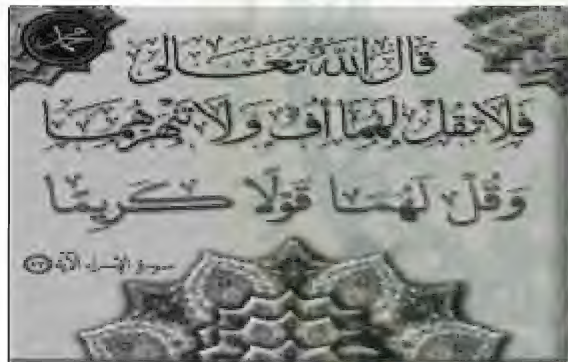 قال الله تعالى
فلا تقل لهما أف ولا تنهرهما
وقل لهما قولا كريما
سورة الإسراء الآية